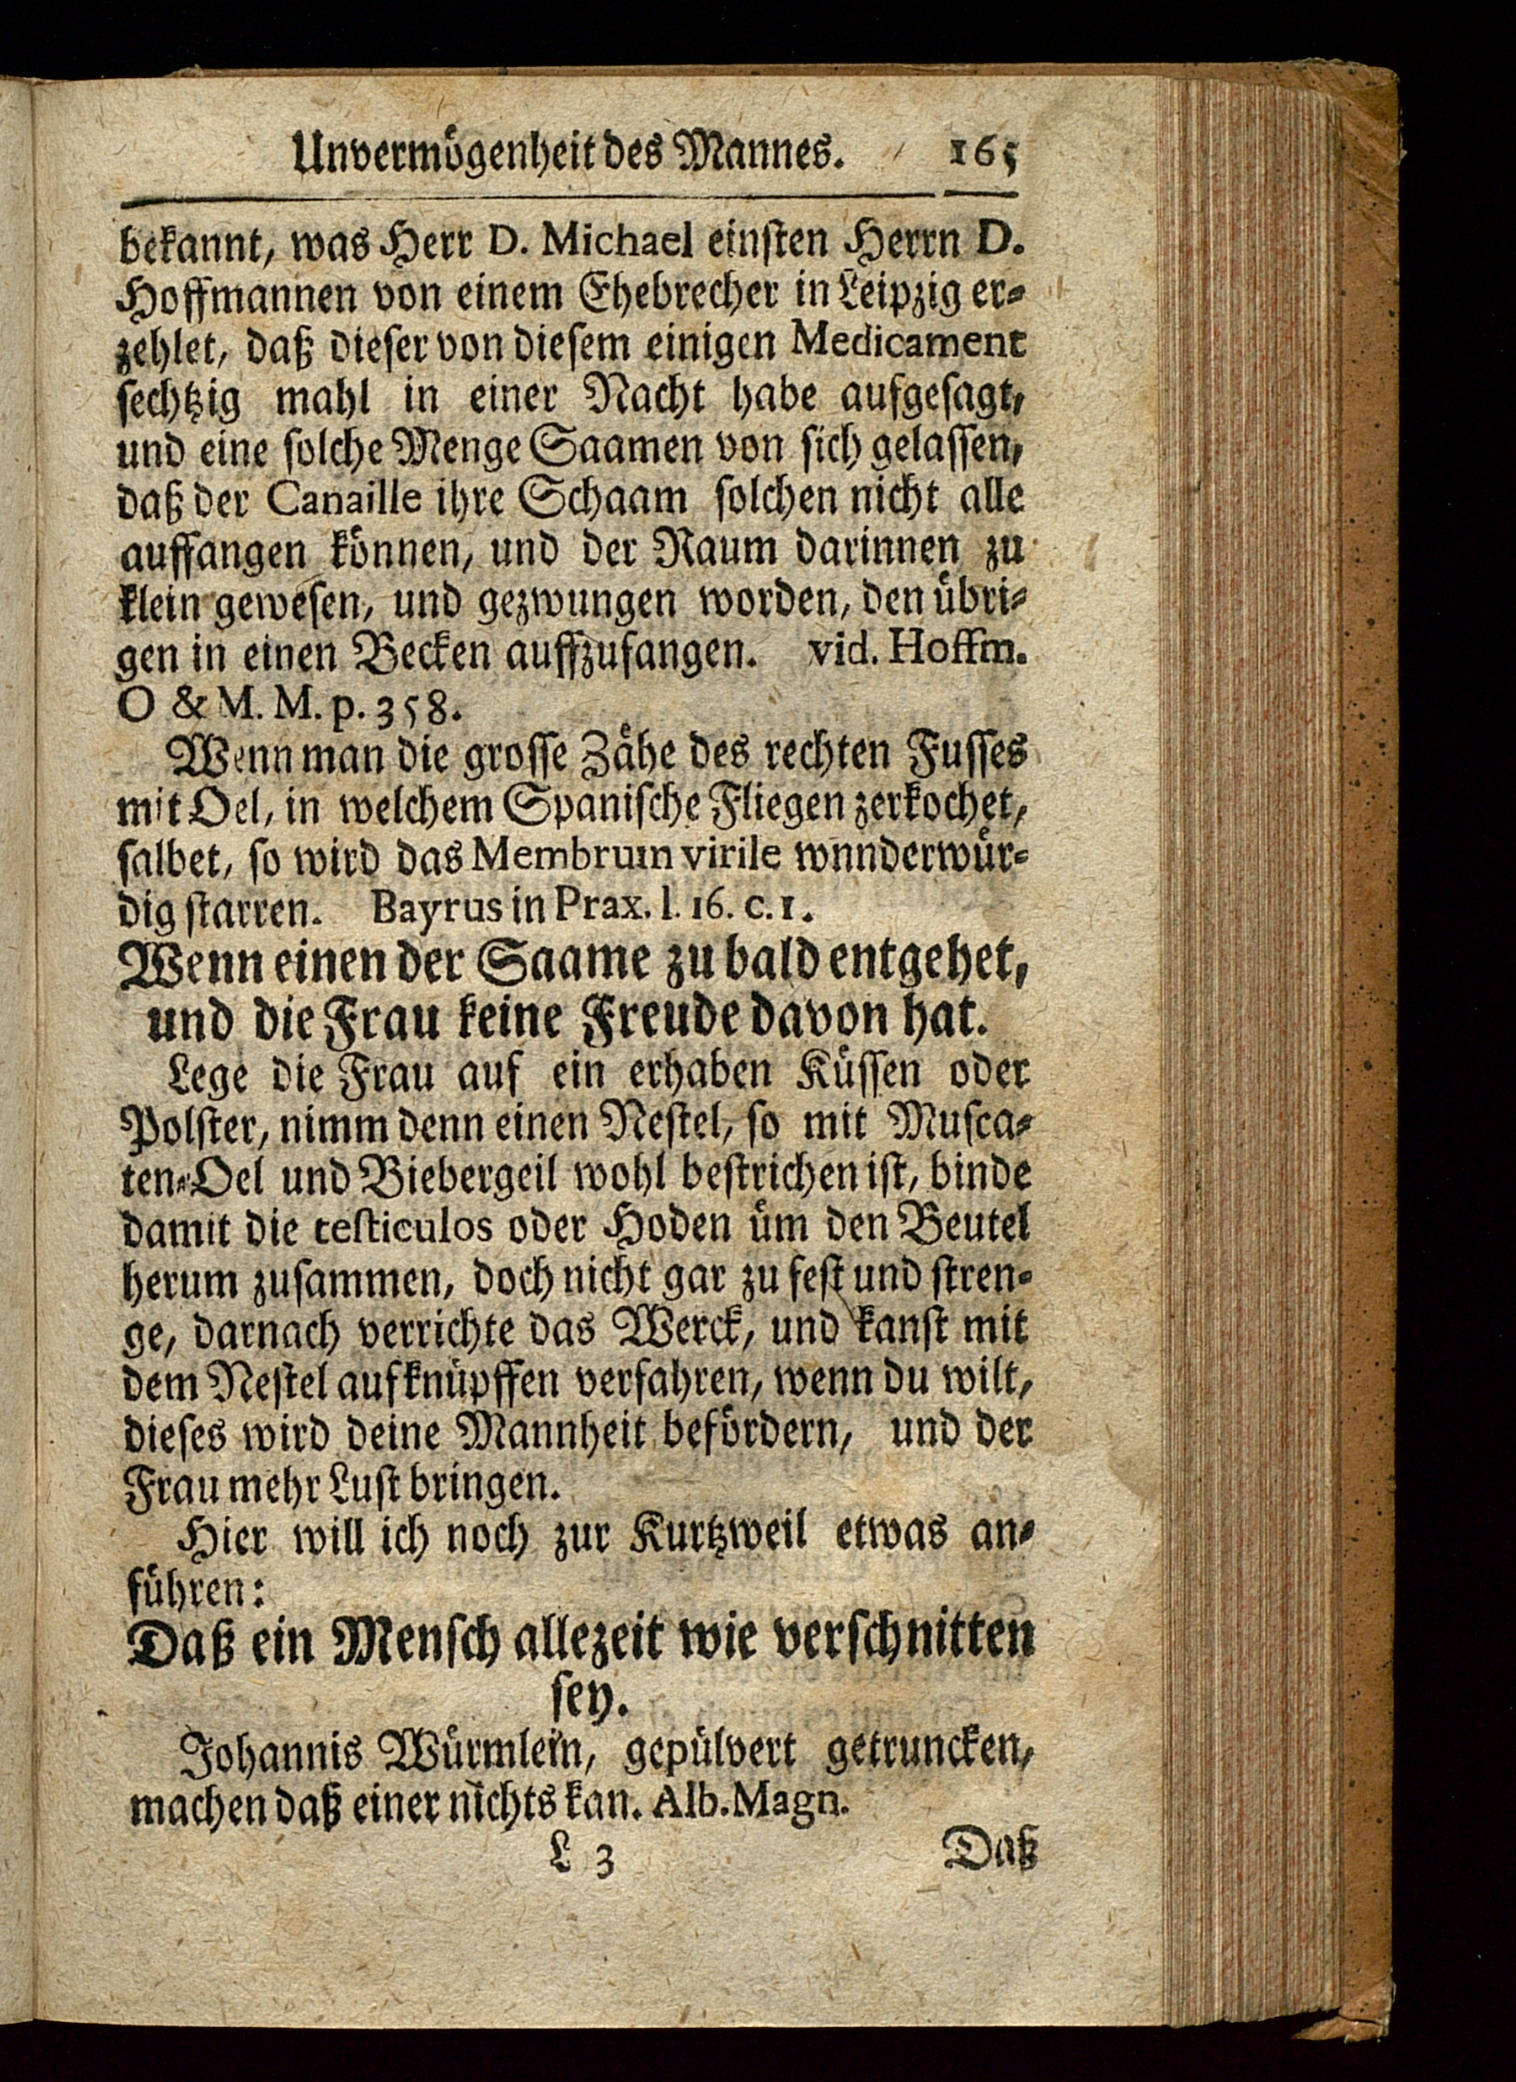 Unvermögenheit des Mannes. 165
bekannt, was Herr D. Michael einsten Herrn D.
Hoffmannen von einem Ehebrecher in Leipzig er-
zehlet, daß dieser von diesem einigen Medicament
sechtzig mahl in einer Nacht habe aufgesagt,
und eine solche Menge Saamen von sich gelassen,
daß der Canaille ihre Schaam solchen nicht alle
auffangen können, und der Raum darinnen zu
klein gewesen, und gezwungen worden, den übri-
gen in einen Becken auffzufangen. vid. Hoffm.
O & M. M. p. 358.
Wenn man die grosse Zähe des rechten Fusses
mit Oel, in welchem Spanische Fliegen zerkochet,
salbet, so wird das Membrum virile wnnderwür-
dig starren. Bayrus in Prax. l. 16. c. 1.
Wenn einen der Saame zu bald entgehet,
und die Frau keine Freude davon hat.
Lege die Frau auf ein erhaben Küssen oder
Polster, nimm denn einen Nestel, so mit Musca-
ten-Oel und Biebergeil wohl bestrichen ist, binde
damit die testiculos oder Hoden üm den Beutel
herum zusammen, doch nicht gar zu fest und stren-
ge, darnach verrichte das Werck, und kanst mit
dem Nestel aufknüpffen verfahren, wenn du wilt,
dieses wird deine Mannheit befördern, und der
Frau mehr Lust bringen.
Hier will ich noch zur Kurtzweil etwas an-
führen:
Daß ein Mensch allezeit wie verschnitten
sey.
Johannis Würmlein, gepülvert getruncken,
machen daß einer nichts kan. Alb. Magn.
L 3 Daß